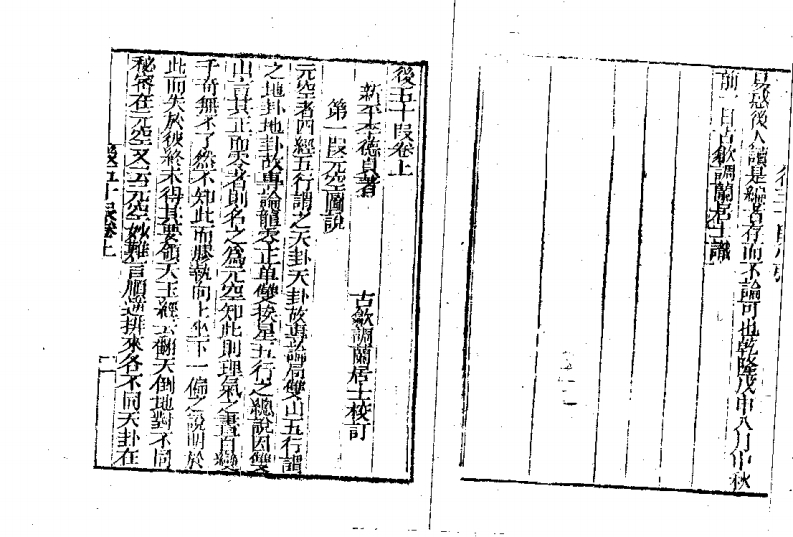 易惑後人讀是編者存而不論可也乾隆戊申八月中秋
前一日古歙調蘭居士識
後五十段卷上
新平李德貞著
古歙調蘭居士校訂
第一段元空圖說
元空者四經五行謂之天卦天卦故專論局雙山五行謂
之地卦地卦故專論龍零正单雙挨星五行之總說因雙
山言其正而零者則名之爲元空知此則理氣之書百變
千奇無不了然不知此而膠執向上坐下一偏之說明於
此而失於彼終未得其要領天玉經云翻天倒地對不同
秘密在元空又云元空妙難言順逆排來各不同天卦在
後五十段卷上
一